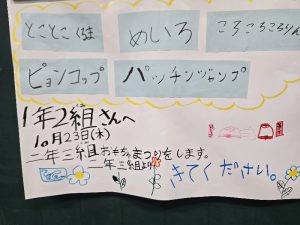 とことこくるま めいろ ころころころりん
ピョンコップ パッチンジャンプ
1年2組さんへ
10月23日(木)
二年三組おもちゃまつりをします。
二年三組より
きてください。